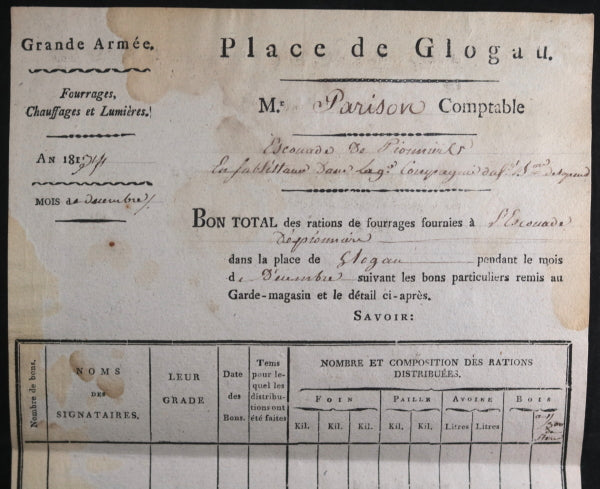 Grande Armée.
Fourrages,
Chauffages et Lumières.
An 181
Mois de decembre
Place de Glogau.
Mr. Parison Comptable
Escouade De Pionniers
Compagnie du
Bon total des rations de fourrages fournies à l'Escouade
de pionnière
dans la place de Glogau pendant le mois
de Décembre suivant les bons particuliers remis au
Garde-magasin et le détail ci-après.
Savoir:
Nombre de bons.
NOMS
DES
SIGNATAIRES.
LEUR
GRADE
Date
des
Bons.
Tems
pour le-
quel les
distribu-
tions ont
été faites
NOMBRE ET COMPOSITION DES RATIONS
DISTRIBUÉES.
Foin
Paille
Avoine
Bois
Kil. Kil. Kil. Kil. Kil. Litres Litres